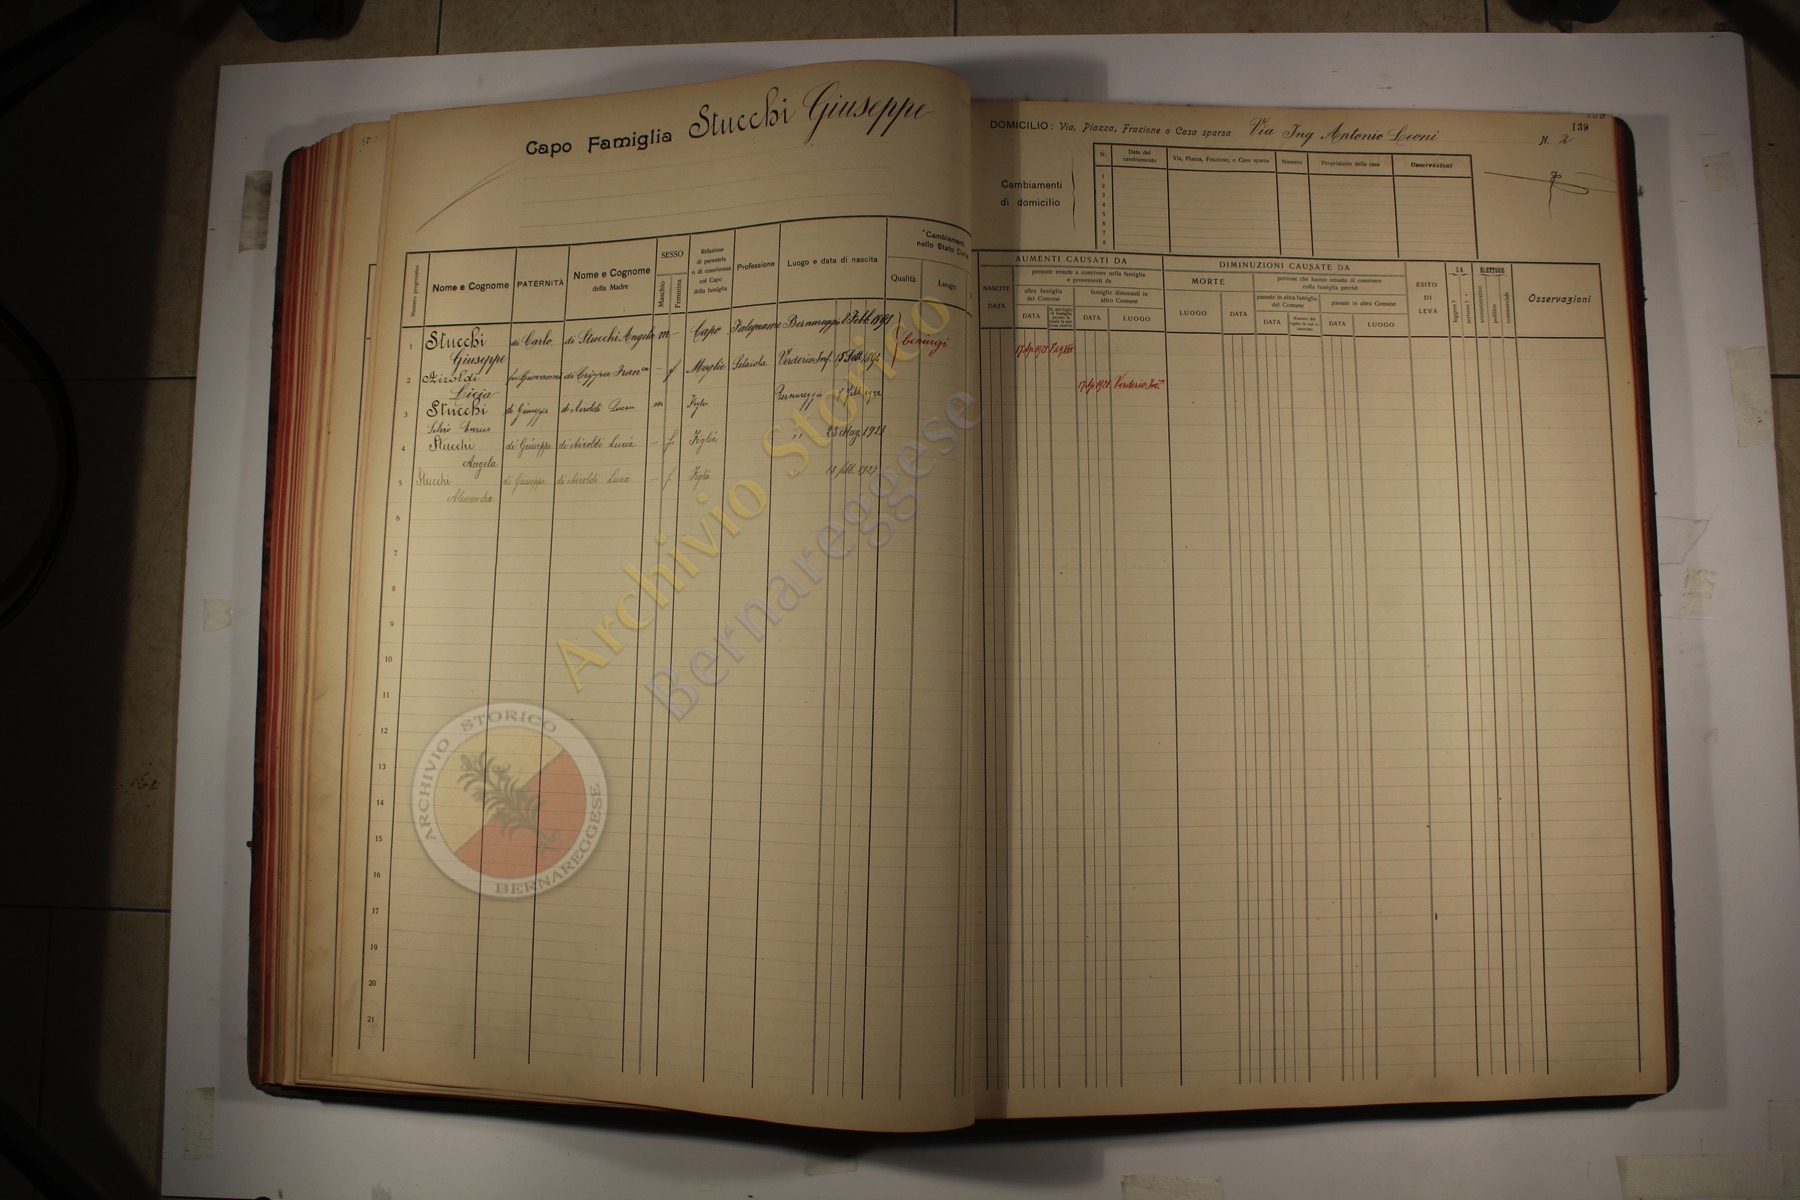 Capo Famiglia Stucchi Giuseppe
Numero progressivo
Nome e Cognome
PATERNITÀ
Nome e Cognome della Madre
SESSO
Maschio
Femmina
Relazione di parentela o di convivenza col Capo della famiglia
Professione
Luogo e data di nascita
Cambiamenti nello Stato Civile
Qualità
Luogo
1 Stucchi Giuseppe di Carlo di Stucchi Angela m – Capo Falegname Bernareggio 8 Febb.
Coniugi
2 Airoldi Lucia fu Giovanni di Crippa – f Moglie Setaiola Verderio Inf. 15 Sett.
3 Stucchi di Giuseppe di Airoldi Lucia m Figlio Bernareggio 1922
4 Stucchi Angela di Giuseppe di Airoldi Lucia – f. Figlia " 23 Mag. 1923
5 Stucchi Alessandra di Giuseppe di Airoldi Lucia – f Figlia " 13 febb.
6
7
8
9
10
11
12
13
14
15
16
17
19
20
21
139
DOMICILIO: Via, Piazza, Frazione o Casa sparsa Via Ing Antonio Leoni N. 2
Cambiamenti di domicilio
N.
Data del cambiamento
Via, Piazza, Frazione, o Casa sparsa
Numero
Proprietario della casa
Osservazioni
1
2
3
4
5
6
7
8
AUMENTI CAUSATI DA
NASCITE
DATA
persone venute a convivere nella famiglia e provenienti da
altra famiglia del Comune
DATA
famiglie dimoranti in altro Comune
DATA
LUOGO
DIMINUZIONI CAUSATE DA
MORTE
LUOGO
DATA
persone che hanno cessato di convivere colla famiglia perchè
passate in altra famiglia del Comune
DATA
passate in altro Comune
DATA
LUOGO
ESITO DI LEVA
SA
leggere?
scrivere?
ELETTORE
amministrativo
politico
commerciale
Osservazioni
1921
1921 Verderio Inf.
Archivio Storico
Bernareggese
ARCHIVIO STORICO
BERNAREGGESE